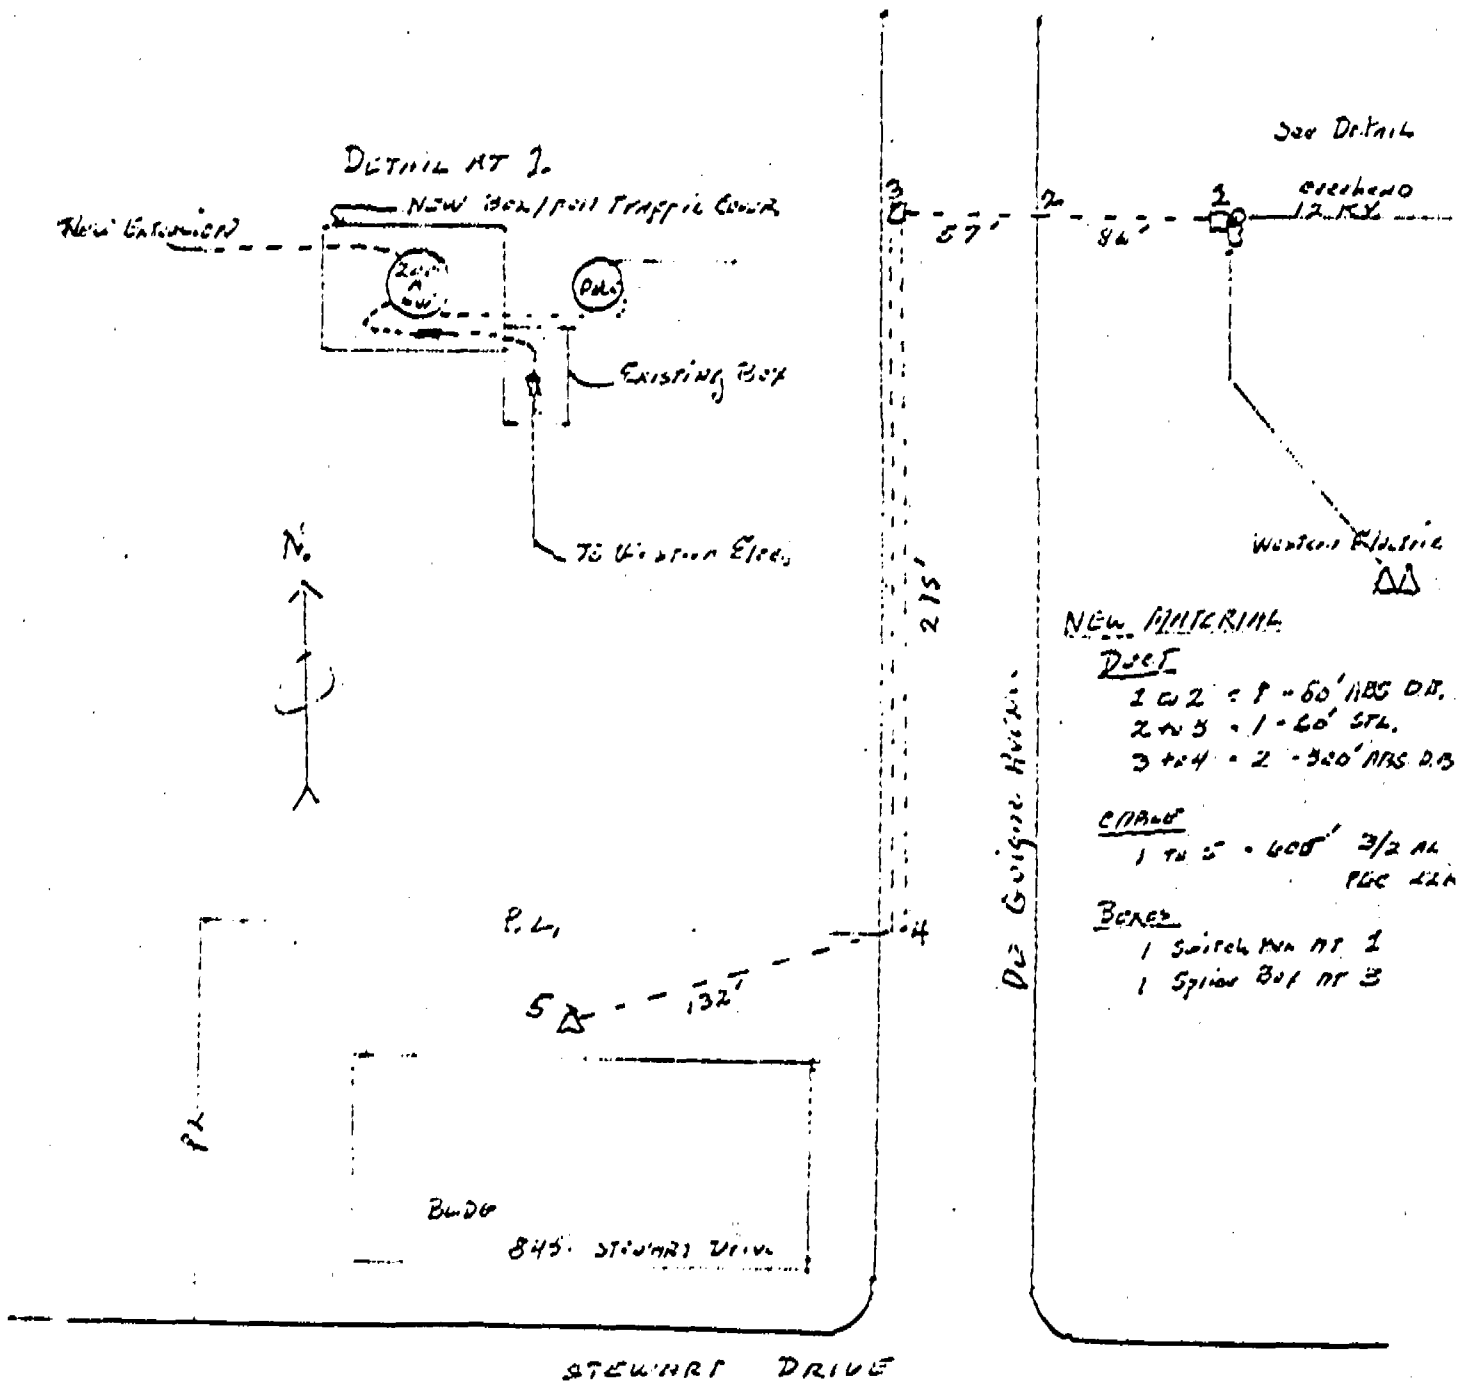 See Detail
DETAIL AT 1.
NEW Box/Full Traffic Cover
New Extension
Pole
Existing Box
To Western Elec.
N.
3
2
1
overhead
12 KV.
57'
275'
Western Electric
NEW MATERIAL
Duct
1 to 2 = 1 - 60' ABS D.B.
2 to 3 = 1 - 60' STL.
3 to 4 = 2 - 320' ABS D.B
CABLE
1 to 5 = 600' 3/2 AL
Boxes
1 Switch Box AT 1
1 Splice Box AT 3
De Guigne
P.L.
4
5
132'
PL
BLDG
845 STEWART DRIVE
STEWART DRIVE